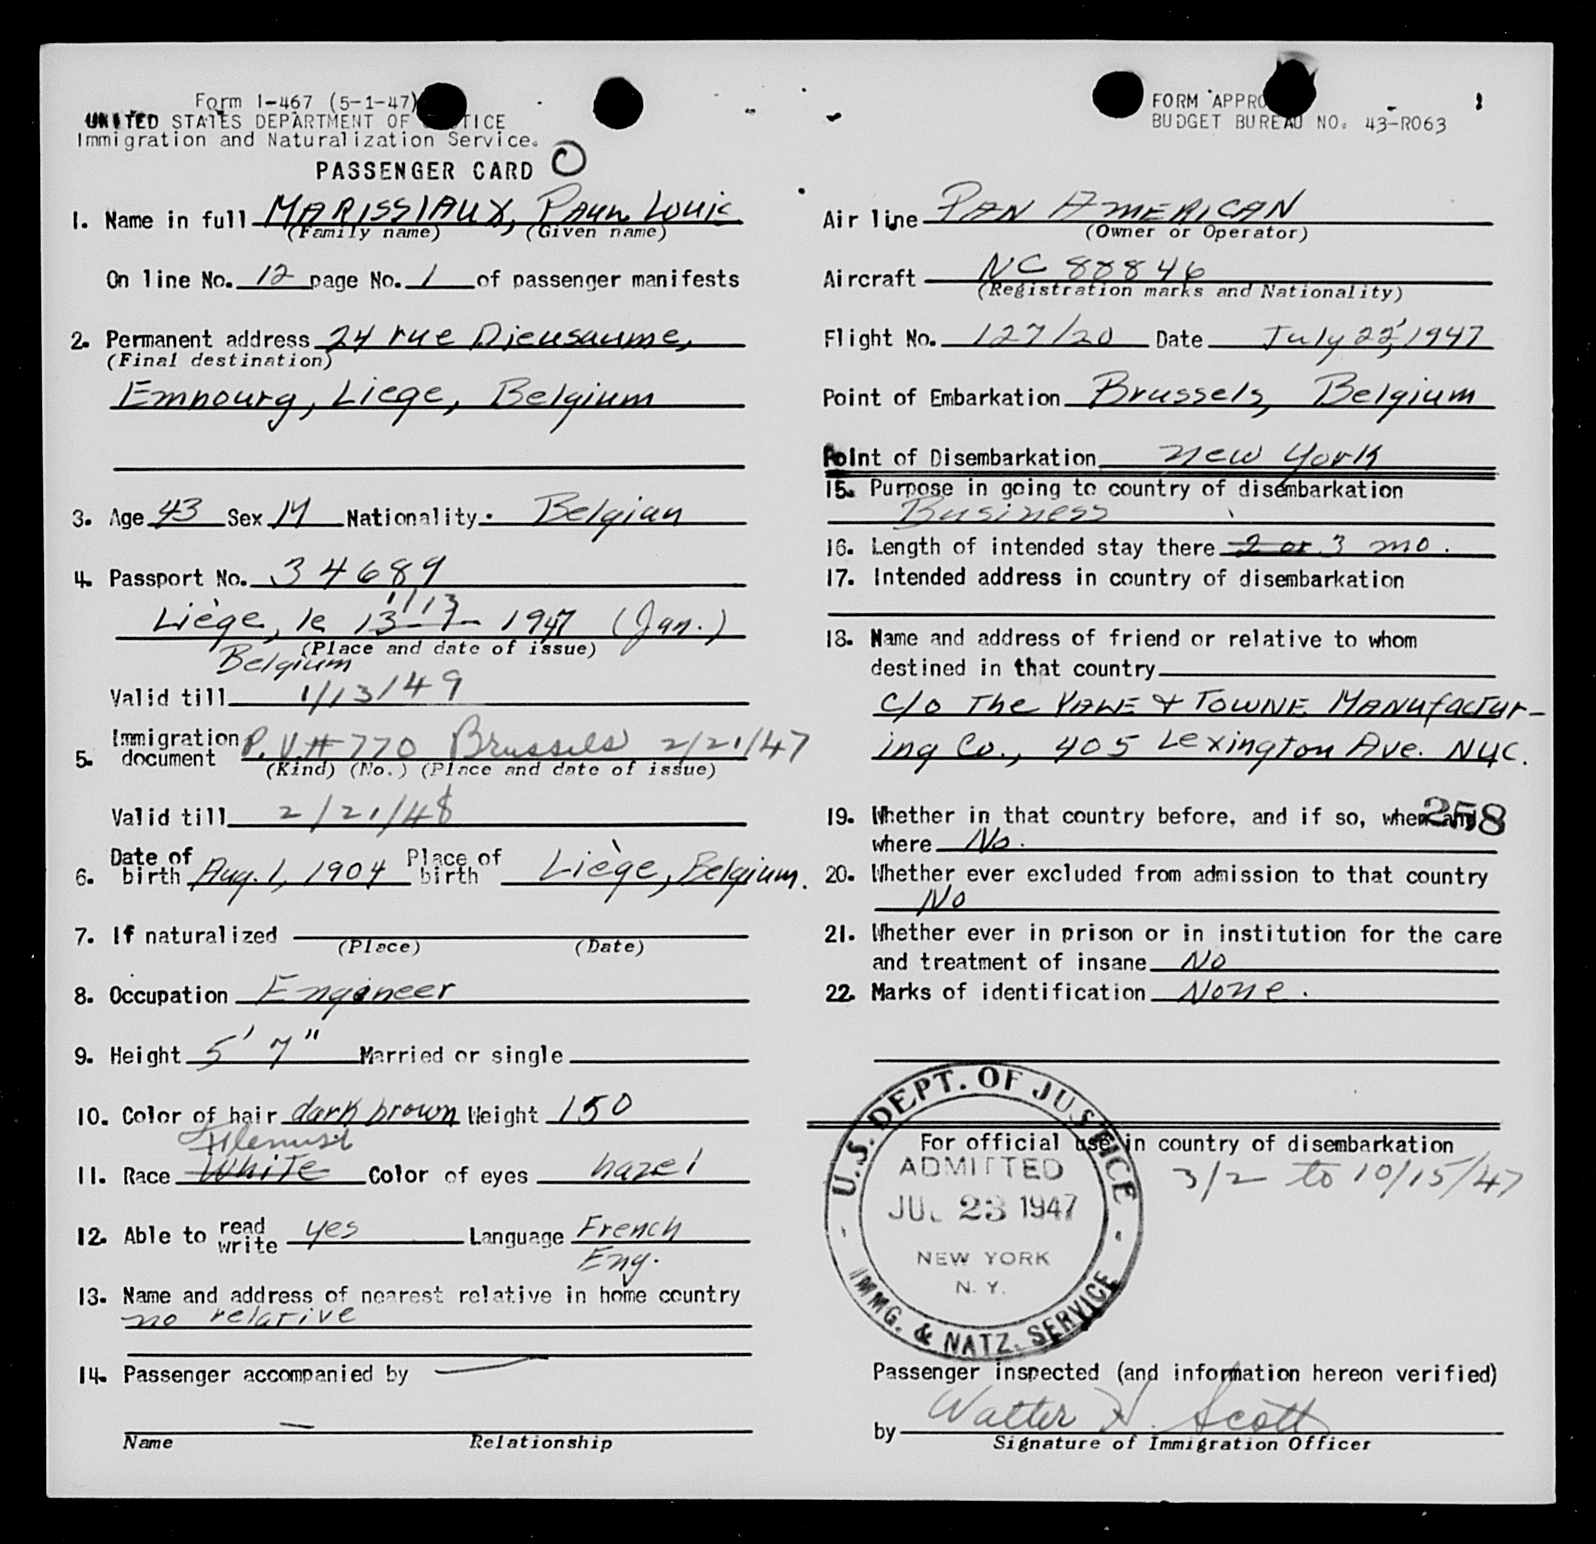 Form I-467 (5-1-47)
UNITED STATES DEPARTMENT OF JUSTICE
Immigration and Naturalization Service.
PASSENGER CARD
1. Name in full MARISSIAUX, Louis
(Family name) (Given name)
On line No. 12 page No. 1 of passenger manifests
2. Permanent address 24 rue Dieusaume,
(Final destination)
Embourg, Liege, Belgium
3. Age 43 Sex M Nationality Belgian
4. Passport No. 34689
1/13
Liège, le 13-1- 1947 (Jan.)
(Place and date of issue)
Belgium
Valid till 1/13/49
5. Immigration document P.V.# 770 Brussels 2/21/47
(Kind) (No.) (Place and date of issue)
Valid till 2/21/48
6. Date of birth Aug. 1, 1904 Place of birth Liège, Belgium.
7. If naturalized
(Place) (Date)
8. Occupation Engineer
9. Height 5' 7" Married or single
10. Color of hair dark brown Weight 150
11. Race White Color of eyes hazel
12. Able to read write yes Language French
Eng.
13. Name and address of nearest relative in home country
no relative
14. Passenger accompanied by
Name Relationship
FORM APPRO
BUDGET BUREAU NO. 43-R063
Air line PAN AMERICAN
(Owner or Operator)
Aircraft NC 88846
(Registration marks and Nationality)
Flight No. 127/20 Date July 22, 1947
Point of Embarkation Brussels, Belgium
Point of Disembarkation New York
15. Purpose in going to country of disembarkation
Business
16. Length of intended stay there 2 or 3 mo.
17. Intended address in country of disembarkation
18. Name and address of friend or relative to whom
destined in that country
c/o The YALE & TOWNE Manufactur-
ing Co., 405 Lexington Ave. NYC.
19. Whether in that country before, and if so, when and 258
where No.
20. Whether ever excluded from admission to that country
No
21. Whether ever in prison or in institution for the care
and treatment of insane No
22. Marks of identification None.
For official use in country of disembarkation
3/2 to 10/15/47
U.S. DEPT. OF JUSTICE
ADMITTED
JUL 23 1947
NEW YORK
N. Y.
IMMG. & NATZ. SERVICE
Passenger inspected (and information hereon verified)
by Walter H. Scott
Signature of Immigration Officer